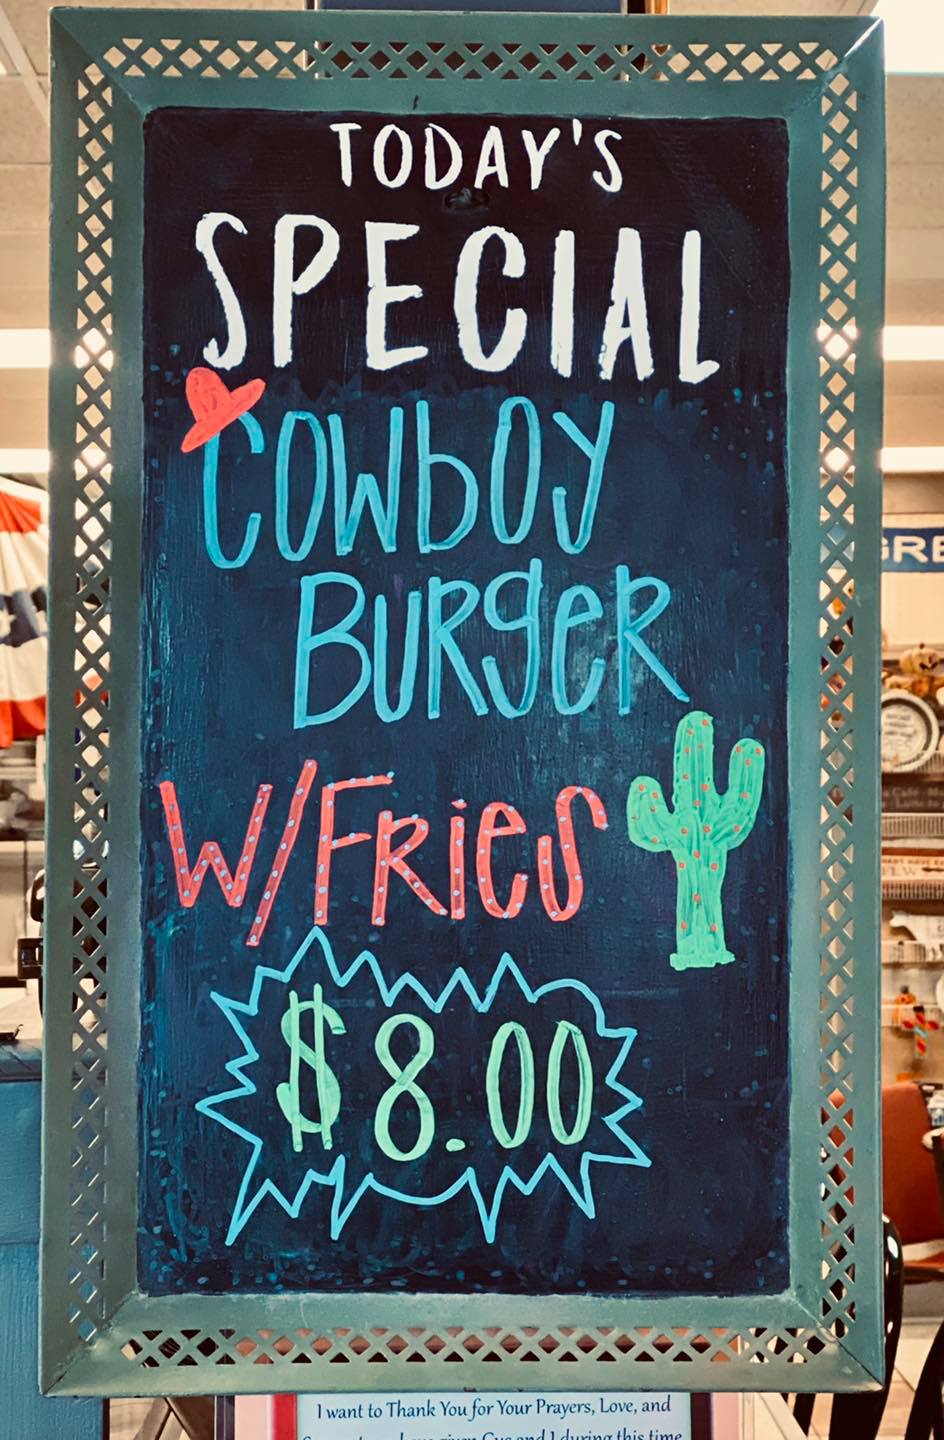 TODAY'S
SPECIAL
COWbOY
BURGER
W/FRiES
$8.00
GRE
I want to Thank You for Your Prayers, Love, and
given Gus and I during this time